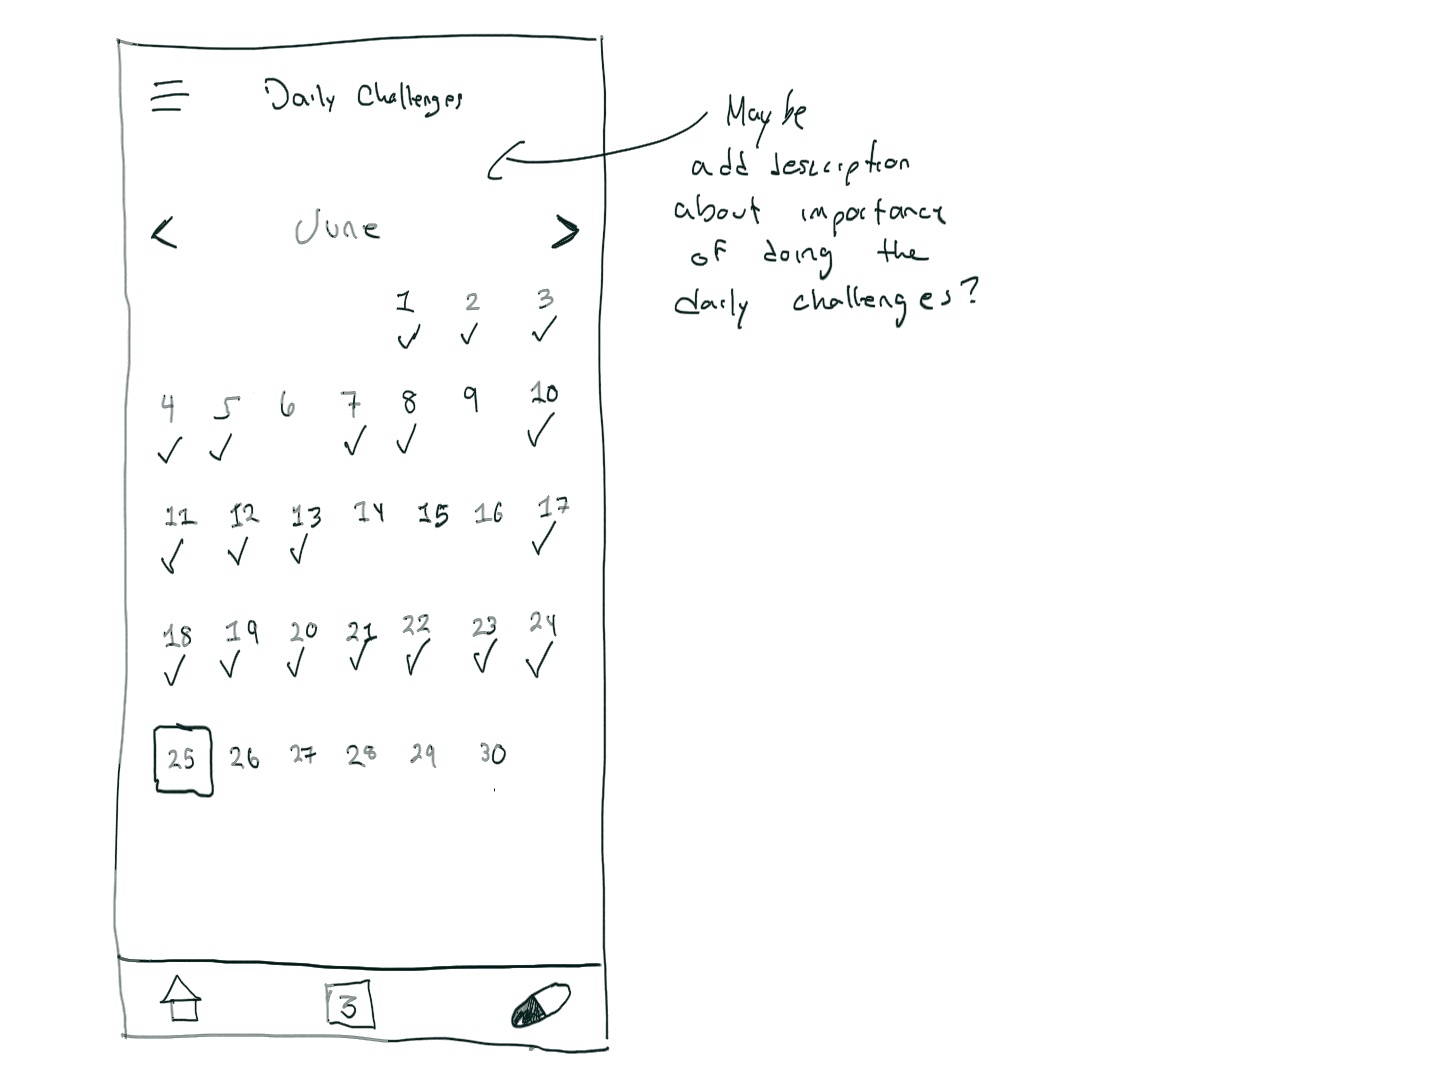 Daily Challenges
Maybe
add description
about importance
of doing the
daily challenges?
< June >
1 2 3
4 5 6 7 8 9 10
11 12 13 14 15 16 17
18 19 20 21 22 23 24
25 26 27 28 29 30
3